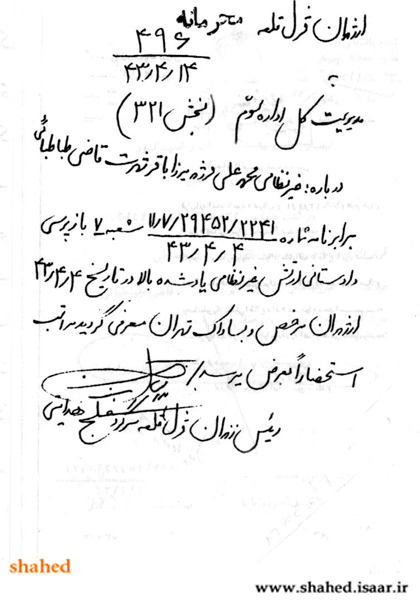 از زندان قزل قلعه محرمانه
۴۹۶
۴۳/۴/۱۴
به
مدیریت کل اداره سوم (بخش ۳۲۱)
درباره: غیرنظامی محمدعلی فرزند میرزا باقر شهرت قاضی طباطبائی
برابر نامه شماره ۱۱/۷/۲۹۴۵۲/۲۲۴۱ شعبه ۷ بازپرسی
۴۳/۴/۴
دادستانی ارتش غیرنظامی یادشده بالا در تاریخ ۴۳/۴/۴
از زندان مرخص و بساواک تهران معرفی گردید مراتب
استحضاراً بعرض میرسد/
رئیس زندان قزل قلعه
shahed
www.shahed.isaar.ir